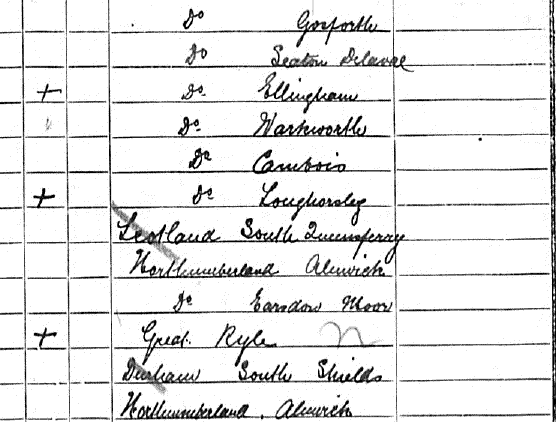 Do Gosforth
Do Seaton Delaval
+ Do Ellingham
Do Warkworth
Do Cambois
+ Do Longhorsley
Scotland South Queensferry
Northumberland Alnwick
Do Earsdon Moor
+ Great Ryle n
Durham South Shields
Northumberland. Alnwick